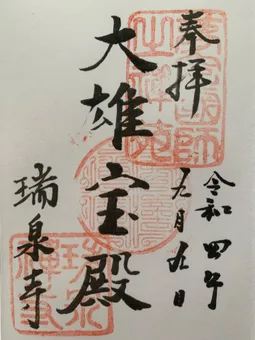 奉拝
令和四年
九月五日
大雄宝殿
瑞泉寺